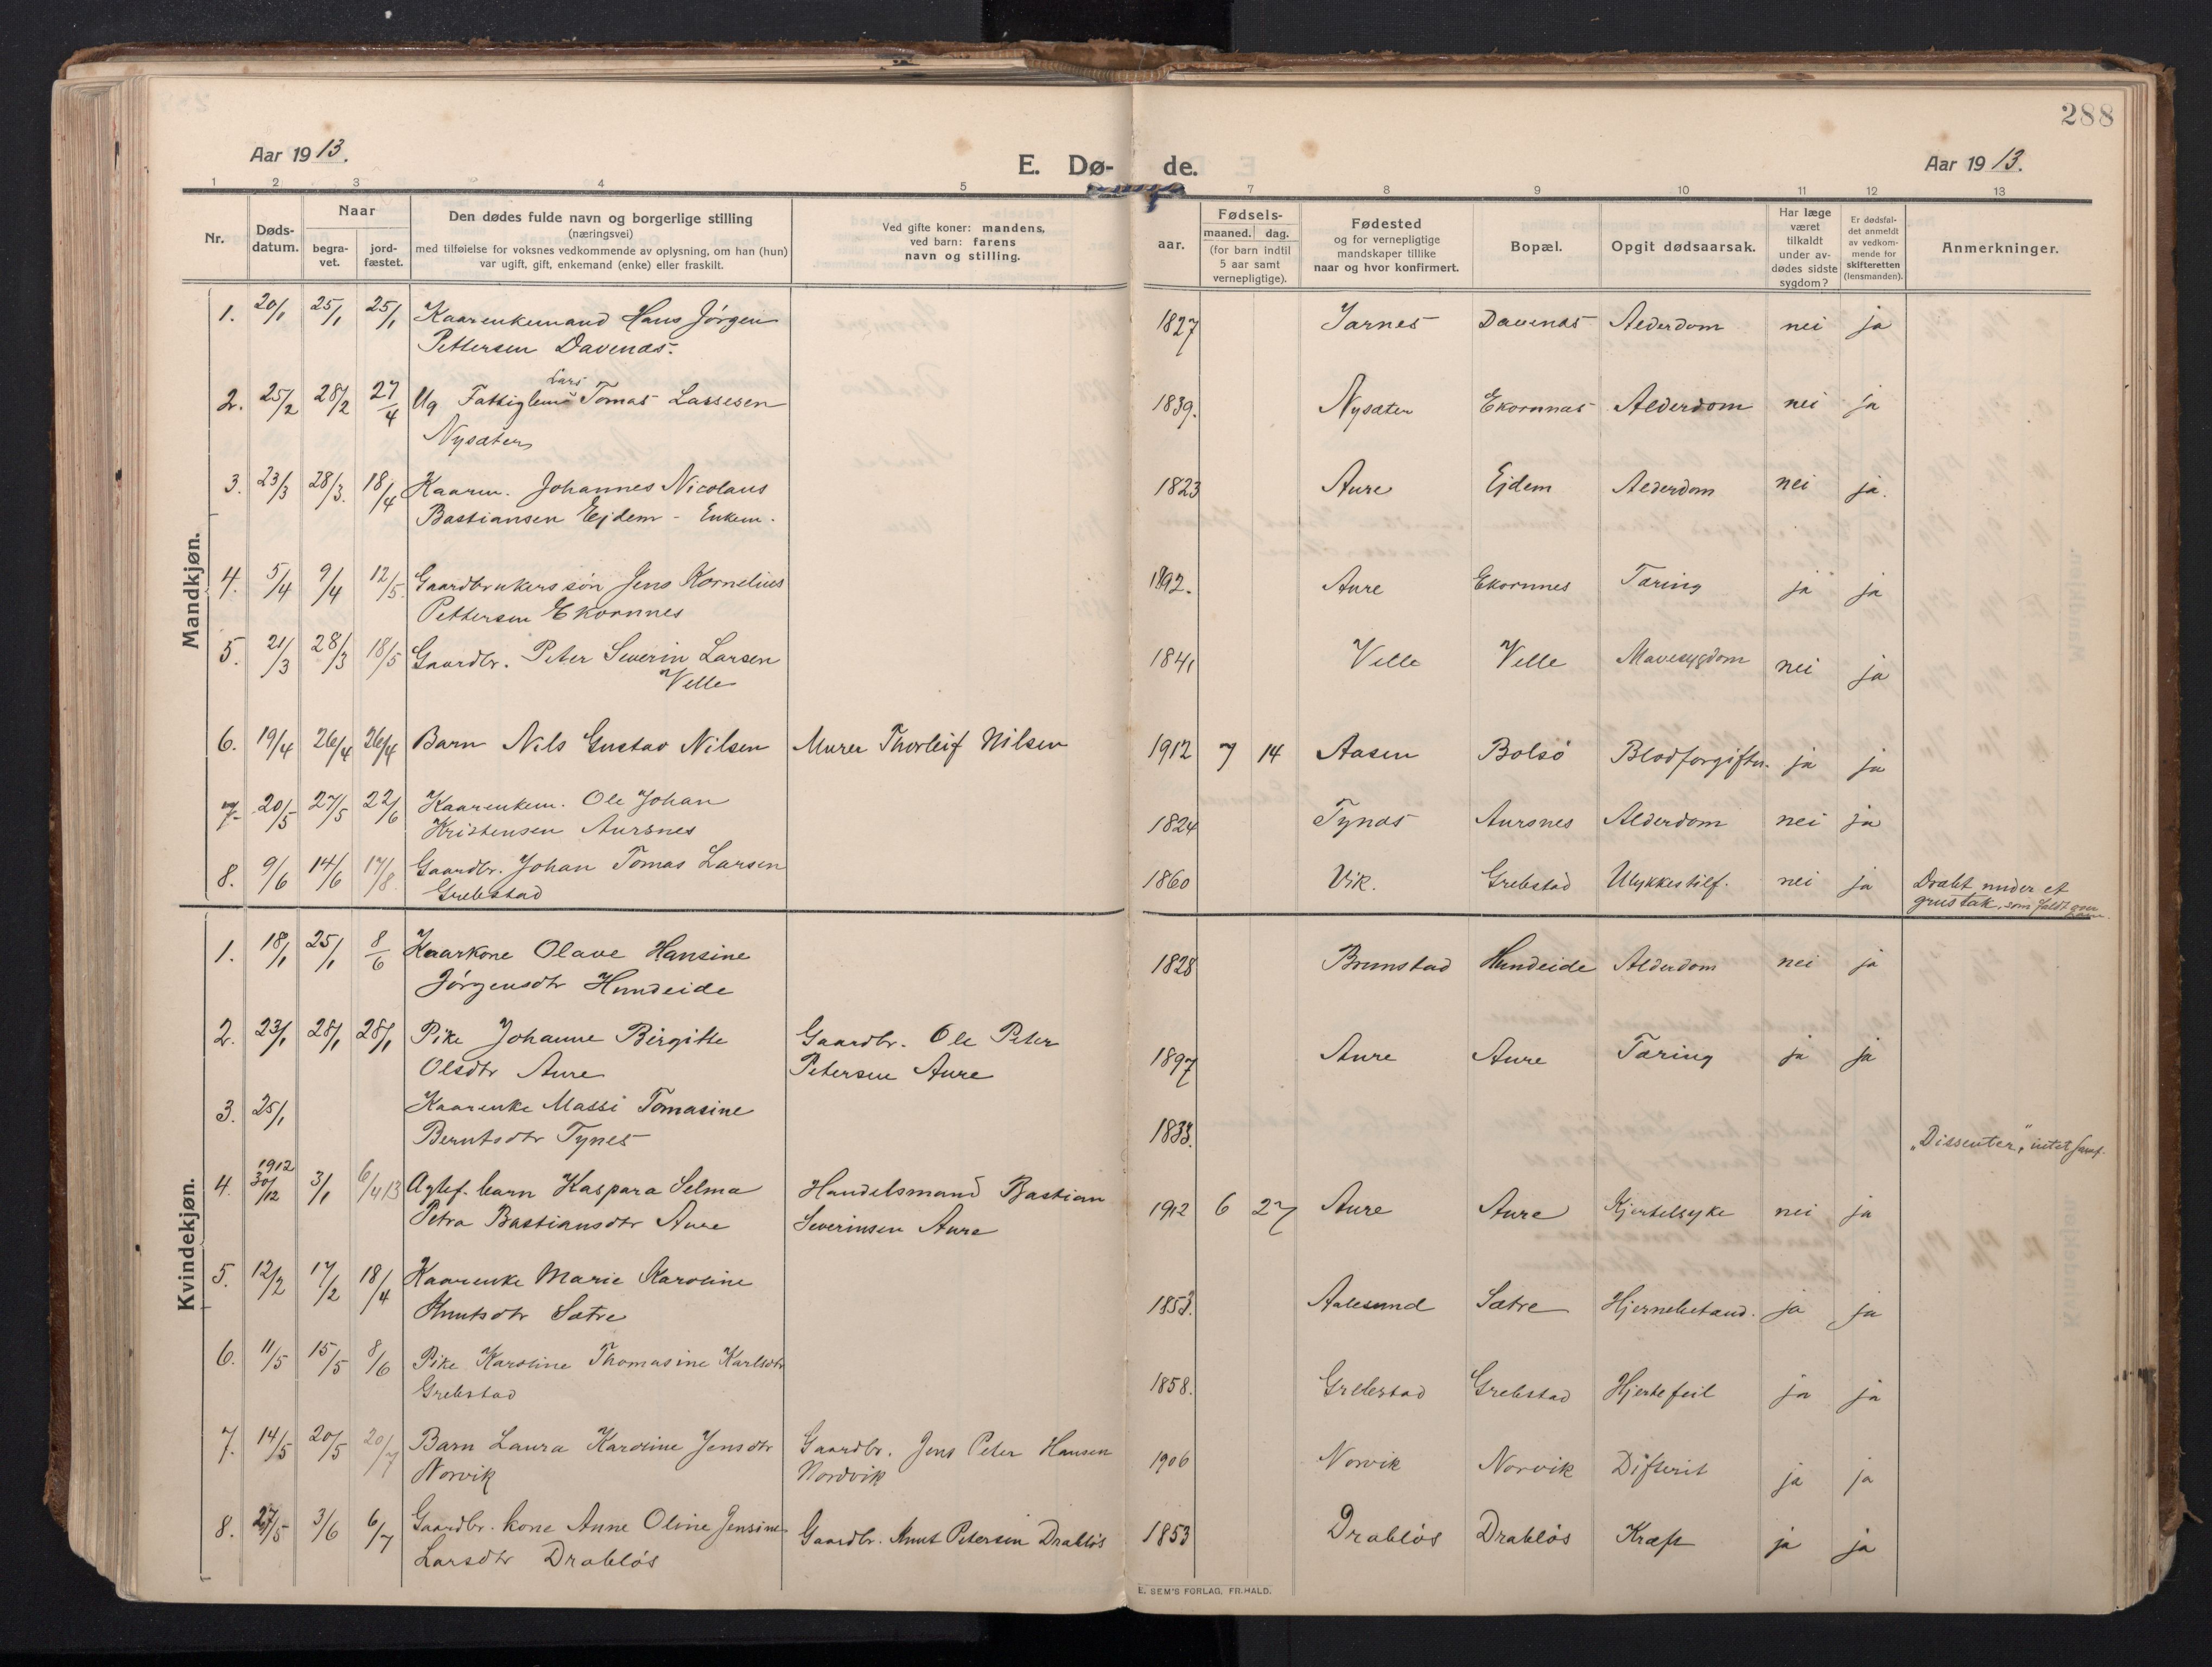 288
Aar 1913.
E. Dø- de.
Aar 1913.
1 2 3 4 5 7 8 9 10 11 12 13
Nr.
Døds-
datum.
Naar
begra-
vet.
jord-
fæstet.
Den dødes fulde navn og borgerlige stilling
(næringsvei)
med tilføielse for voksnes vedkommende av oplysning, om han (hun)
var ugift, gift, enkemand (enke) eller fraskilt.
Ved gifte koner: mandens,
ved barn: farens
navn og stilling.
Fødsels-
aar. maaned. dag.
(for barn indtil
5 aar samt
vernepligtige).
Fødested
og for vernepligtige
mandskaper tillike
naar og hvor konfirmert.
Bopæl.
Opgit dødsaarsak.
Har læge
været
tilkaldt
under av-
dødes sidste
sygdom?
Er dødsfal-
det anmeldt
av vedkom-
mende for
skifteretten
(lensmanden).
Anmerkninger.
Mandkjøn.
1. 20/1 25/1 25/1 Kaarenkemand Hans Jørgen 1827 Jarnes Davenes Alderdom nei ja
Pettersen Davenes.
Lars
2. 25/2 28/2 27/4 Ug Fattiglem Tomas Lassesen 1839. Nysæter Ekornnas Alderdom nei ja
Nysæter
3. 23/3 28/3. 18/4 Kaarm. Johannes Nicolaus 1823 Aure Ejdem Alderdom nei ja.
Bastiansen Ejdem - Enkem.
4. 5/4 9/4 12/5. Gaardbrukerssøn Jens Kornelius 1892. Aure Ekornnes Tæring ja ja
Pettersen Ekornnes
5. 21/3 28/3 18/5 Gaardbr. Peter Severin Larsen 1841 Velle Velle Mavesygdom nei ja
Velle
6. 19/4 26/4 26/4 Barn Nils Gustav Nilsen Murer Thorleif Nilsen 1912 7 14 Aasen Bolsö Blodforgiftn. ja ja
7. 20/5 27/5 22/6 Kaarenkem. Ole Johan 1824 Tynes Aursnes Alderdom nei ja
Kristensen Aursnes
8. 9/6 14/6 17/8. Gaardbr. Johan Tomas Larsen 1860 Vik. Grebstad Ulykkestilf. nei ja Dræbt under et
Grebstad grustak, som faldt
Kvindekjøn.
1. 18/1 25/1 8/6 Kaarkone Olave Hansine 1828 Brunstad Hundeide Alderdom nei ja
Jørgensdtr Hundeide
2. 23/1 28/1 28/1 Pike Johanne Birgitte Gaardbr. Ole Peter 1897 Aure Aure Tæring ja ja
Olsdtr Aure Petersen Aure
3. 25/1 Kaarenke Massi Tomasine 1833.
Berntsdtr Tynes "Dissenter", intet
1912
4. 30/12 3/1 6/4 13 Agtef. barn Kaspara Selma Handelsmand Bastian 1912 6 27 Aure Aure Kjertelsyke nei ja
Petra Bastiansdtr Aure Severinsen Aure
5. 12/2 17/2 18/4 Kaarenke Marie Karoline 1853. Aalesund Sætre Hjernebetænd. ja ja
Knutsdtr Sætre
6. 11/5 15/5 8/6 Pike Karoline Thomasine Karlsdtr 1858. Grebstad Grebstad Hjertefeil ja ja
Grebstad
7. 14/5 20/5 20/7 Barn Laura Karoline Jensdtr Gaardbr. Jens Peter Hansen 1906 Norvik Norvik Difterit ja ja
Norvik Nordvik
8. 27/5 3/6 6/7 Gaardbr. kone Anne Oline Jensine Gaardbr. Knut Petersen Drabløs 1853 Drabløs Drabløs Kræft ja ja
Larsdtr Drabløs
E. SEM'S FORLAG, FR.HALD.